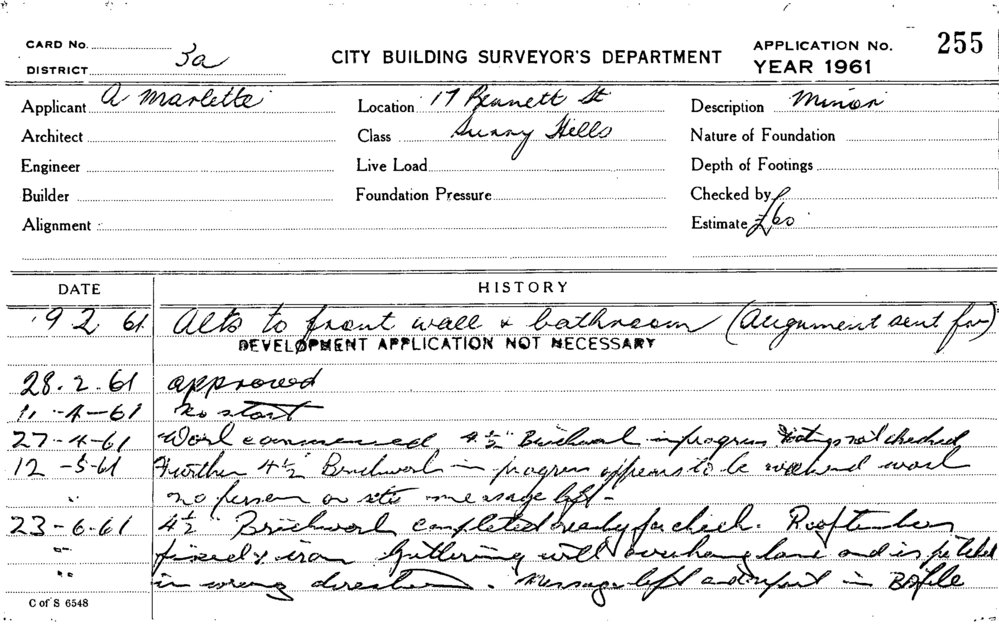 CARD No.
3a
DISTRICT
CITY BUILDING SURVEYOR'S DEPARTMENT
APPLICATION No. 255
YEAR 1961
Applicant A Marlette
Location 17 Bennett St
Description Minor
Architect
Class Surry Hills
Nature of Foundation
Engineer
Live Load
Depth of Footings
Builder
Foundation Pressure
Checked by
Alignment
Estimate £60
DATE
HISTORY
9 2 61 Alts to front wall & bathroom (Alignment sent for)
DEVELOPMENT APPLICATION NOT NECESSARY
28.2.61 approved
11-4-61 No start
27-4-61 Work commenced 4½" Brickwork in progress footings not checked
12-5-61 Further 4½" Brickwork in progress appears to be weekend work
" no person on site message left -
23-6-61 4½" Brickwork completed ready for check. Roof timbers
" fixed & iron Guttering will overhang lane and is pitched
" in wrong direction. Message left and report in BAfile
C of S 6548